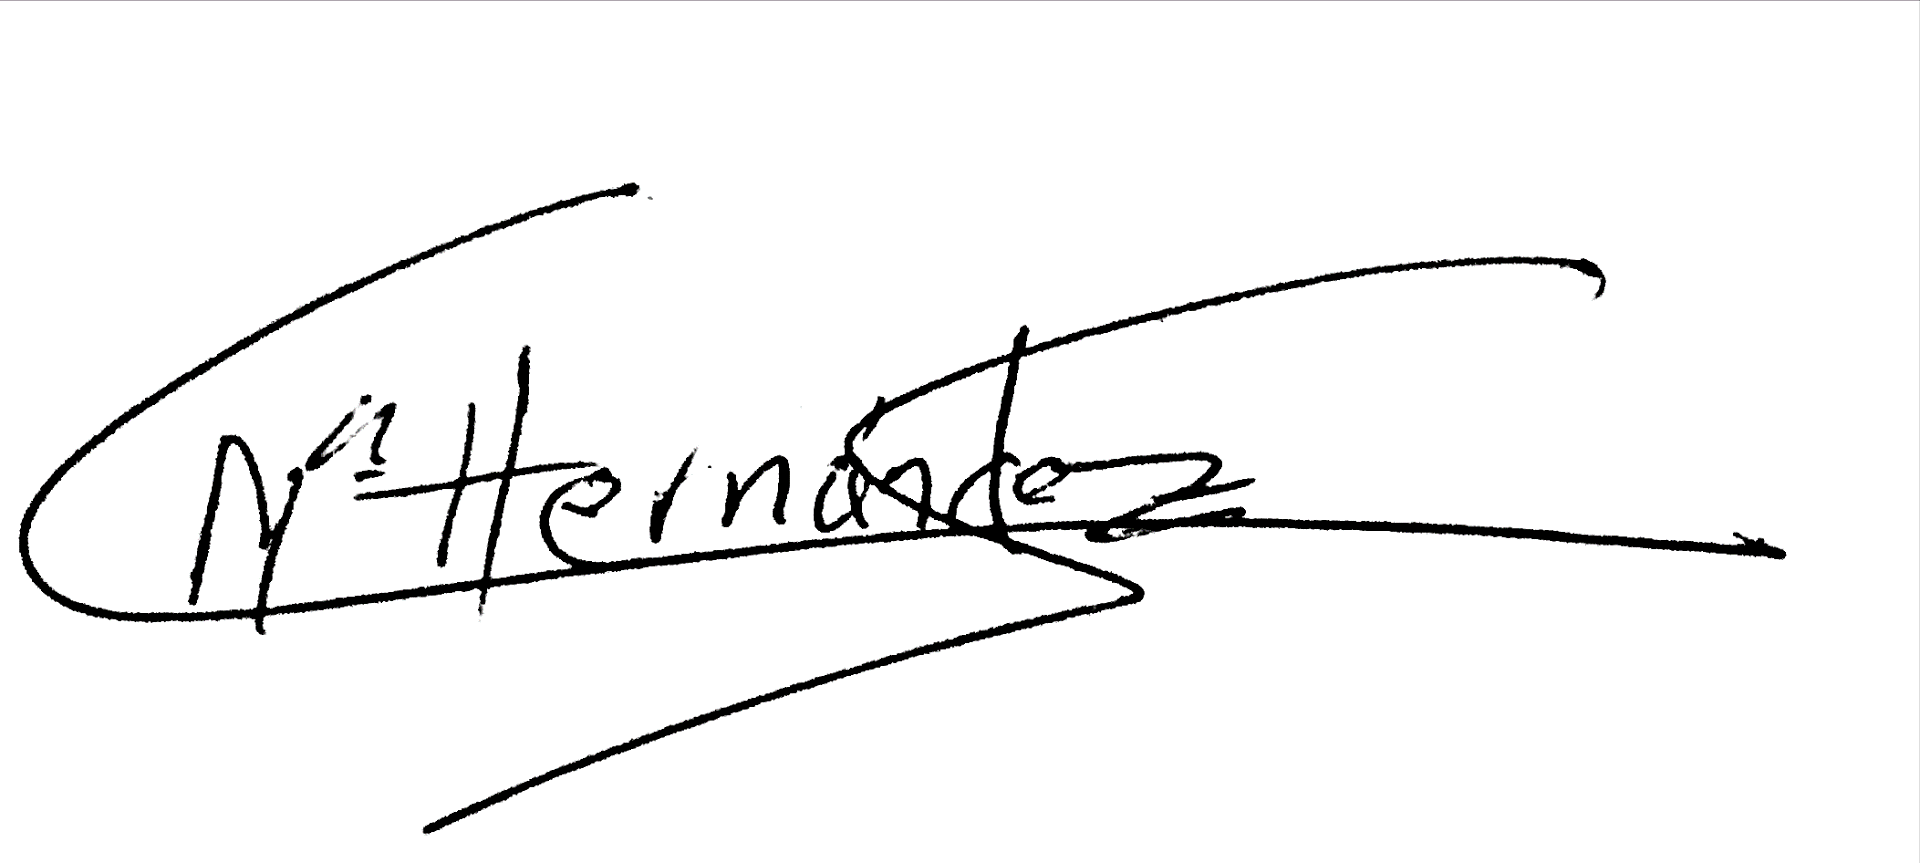 Mª Hernández